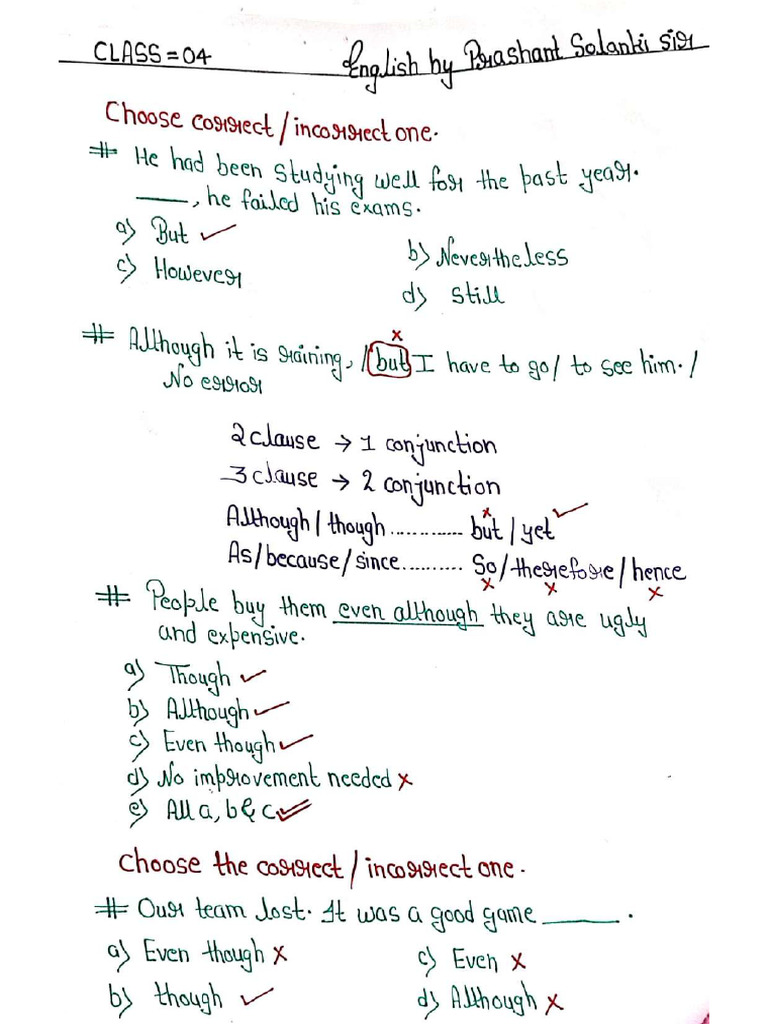 CLASS = 04 English by Prashant Solanki sir
Choose correct / incorrect one.
# He had been studying well for the past year.
____, he failed his exams.
a) But ✓
b) Nevertheless
c) However
d) Still
x
# Although it is raining, / but I have to go / to see him. /
No error
2 clause → 1 conjunction
3 clause → 2 conjunction
Although / though ............ but x / yet ✓
As / because / since .......... So x / therefore x / hence x
# People buy them even although they are ugly
and expensive.
a) Though ✓
b) Although ✓
c) Even though ✓
d) No improvement needed x
e) All a, b & c ✓
Choose the correct / incorrect one.
# Our team lost. It was a good game ______ .
a) Even though x c) Even x
b) though ✓ d) Although x